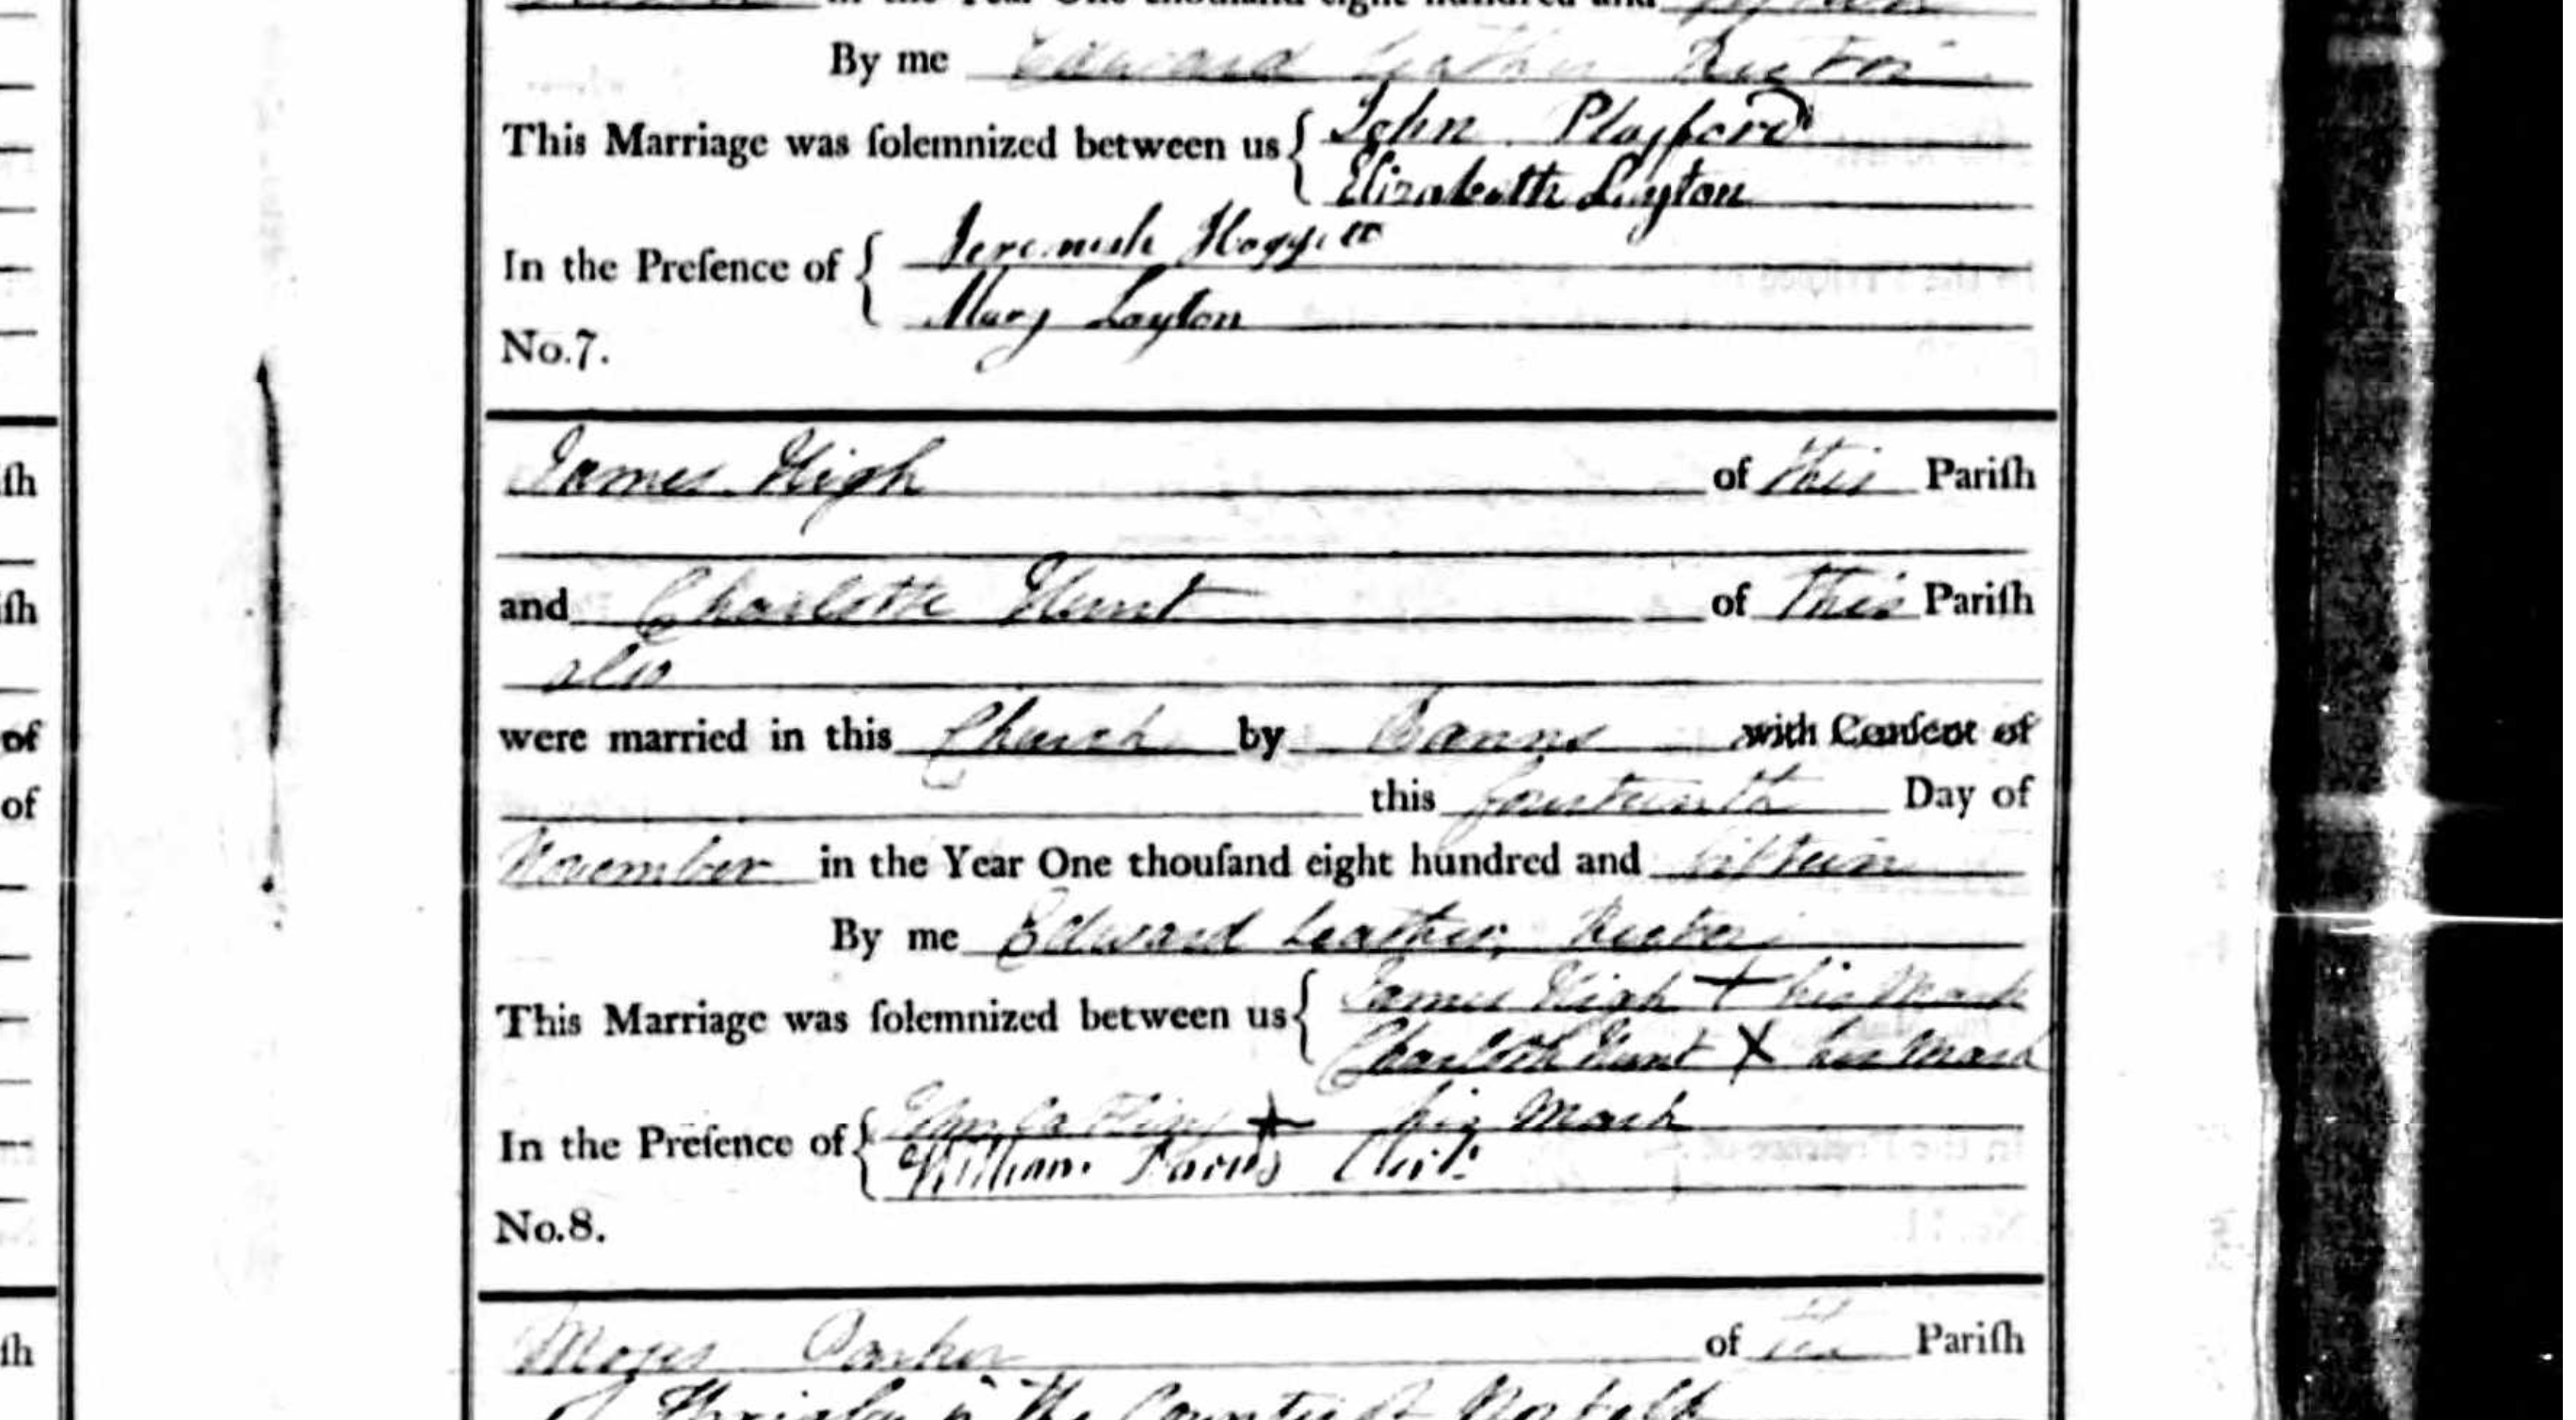 in the Year One thousand eight hundred and fifteen
By me Edward Leathes Rector
This Marriage was ſolemnized between us { John Playford
Elizabeth Layton
In the Preſence of { Jeremiah Hoggett
Mary Layton
No.7.
James High of this Pariſh
and Charlotte Hunt of this Pariſh
also
were married in this Church by Banns with Conſent of
this fourteenth Day of
November in the Year One thouſand eight hundred and fifteen
By me Edward Leathes, Rector
This Marriage was ſolemnized between us { James High + his Mark
Charlotte Hunt X her Mark
In the Preſence of { + his Mark
William Clerk
No.8.
Moses Parker of Pariſh
of in the County of Norfolk